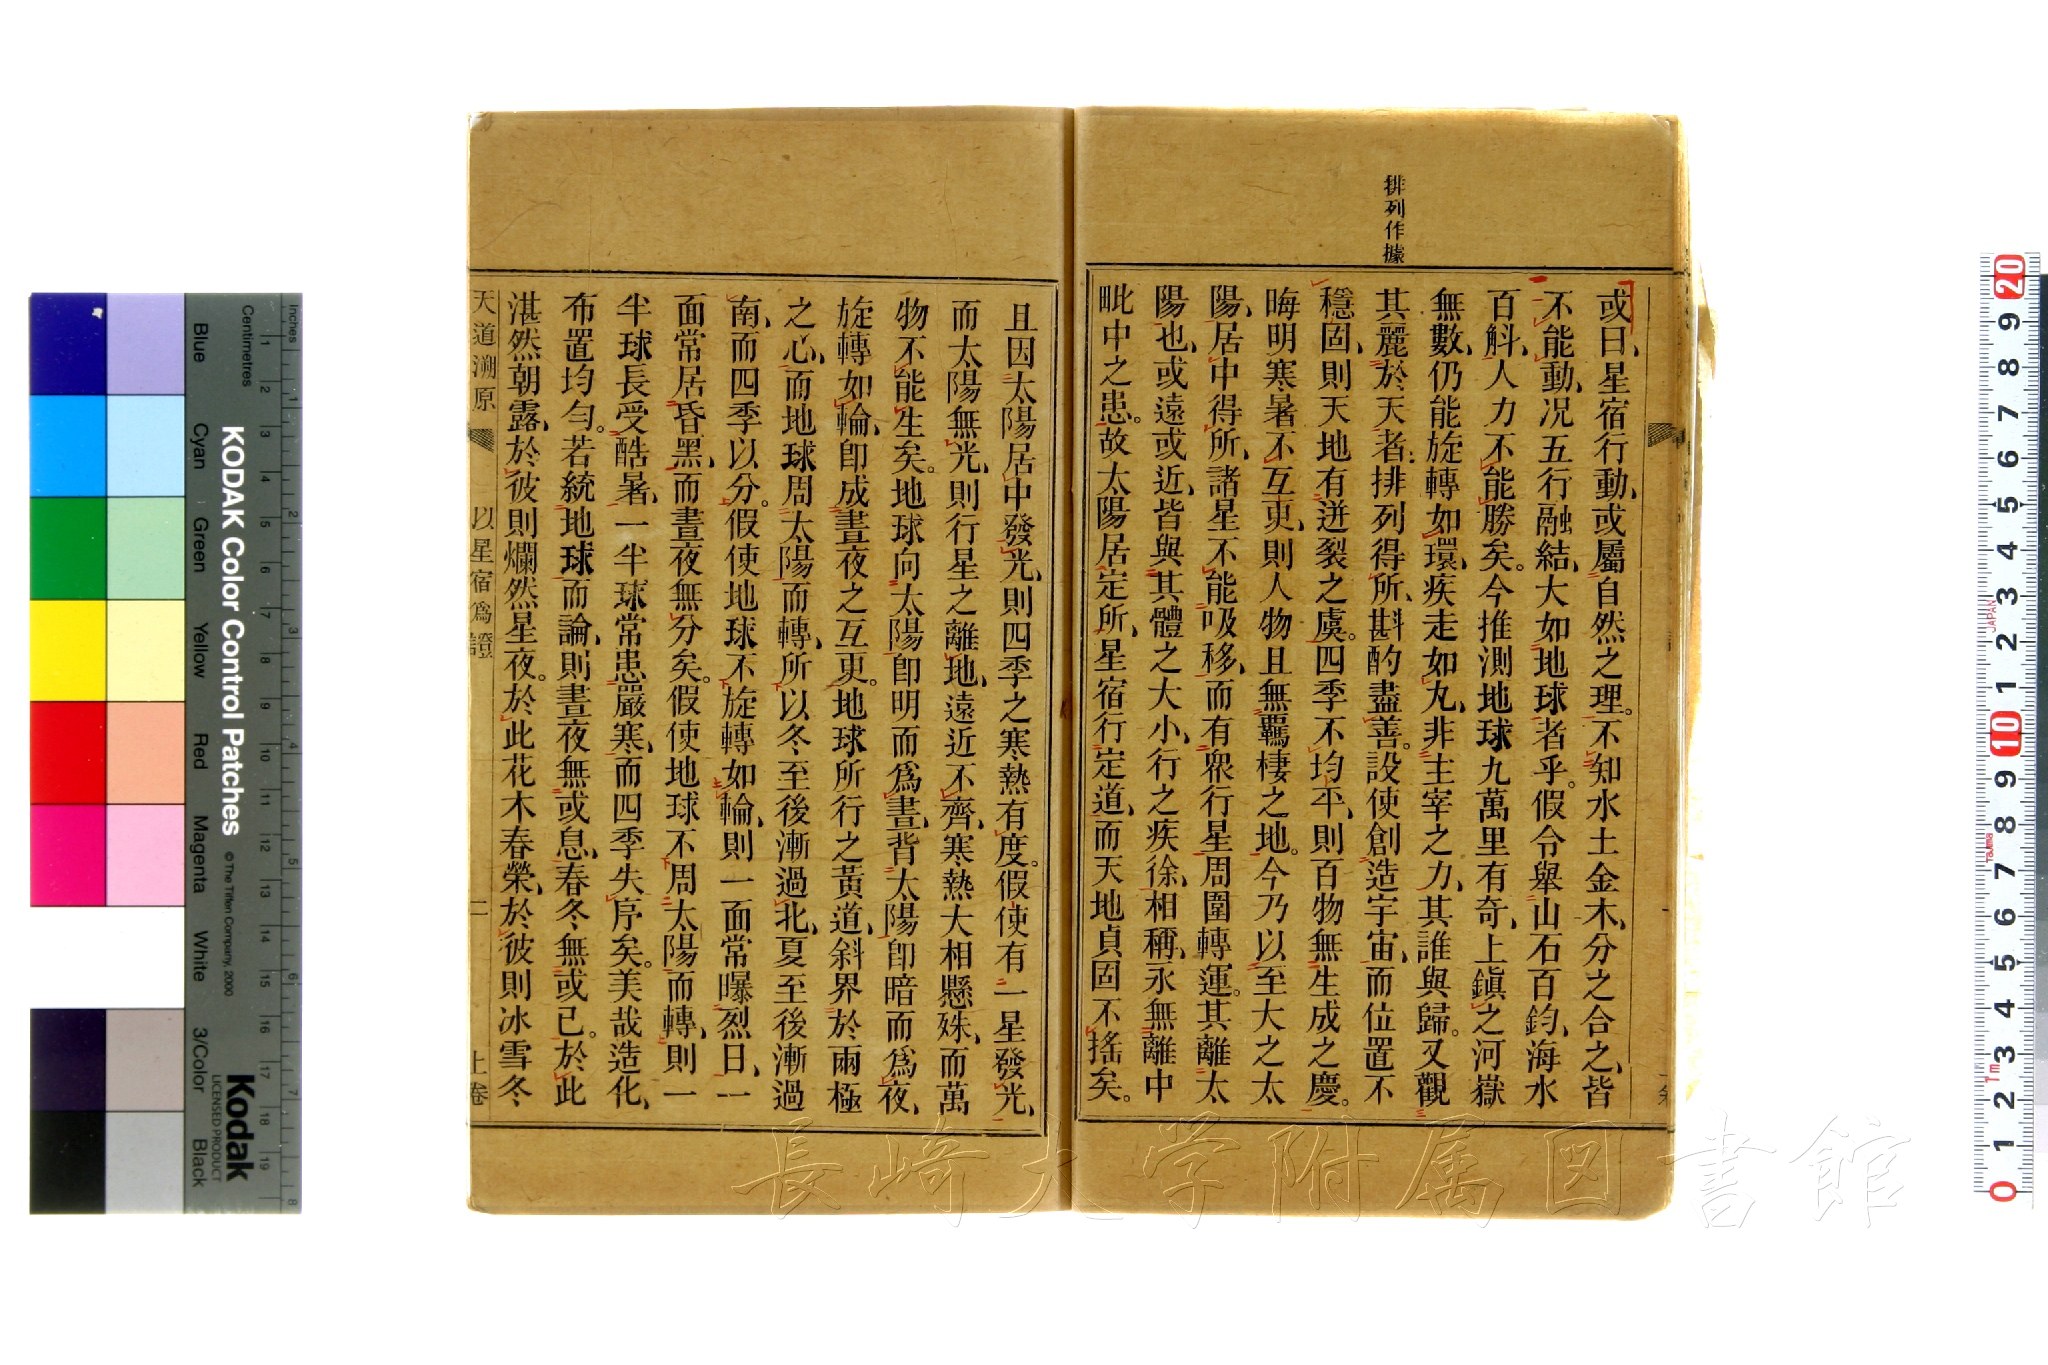 排列作據
或曰、星宿行動、或屬自然之理。不知水土金木、分之合之、皆
不能動、况五行融結、大如地球者乎。假令舉山石百鈞、海水
百斛、人力不能勝矣。今推測地球九萬里有奇、上鎭之河嶽
無數、仍能旋轉如環、疾走如丸、非主宰之力、其誰與歸。又觀
其麗於天者、排列得所、斟酌盡善。設使創造宇宙、而位置不
穩固、則天地有迸裂之虞。四季不均平、則百物無生成之慶。
晦明寒暑不互更、則人物且無覊棲之地。今乃以至大之太
陽、居中得所、諸星不能吸移、而有衆行星周圍轉運。其離太
陽也、或遠或近、皆與其體之大小、行之疾徐、相稱、永無離中
毗中之患。故太陽居定所、星宿行定道、而天地貞固不搖矣。
且因太陽居中發光、則四季之寒熱有度。假使有一星發光、
而太陽無光、則行星之離地、遠近不齊、寒熱大相懸殊、而萬
物不能生矣。地球向太陽卽明而爲晝、背太陽卽暗而爲夜、
旋轉如輪、卽成晝夜之互更。地球所行之黃道、斜界於兩極
之心、而地球周太陽而轉、所以冬至後漸過北、夏至後漸過
南、而四季以分。假使地球不旋轉如輪、則一面常曝烈日、一
面常居昏黑、而晝夜無分矣。假使地球不周太陽而轉、則一
半球長受酷暑、一半球常患嚴寒、而四季失序矣。美哉造化、
布置均勻。若統地球而論、則晝夜無或息、春冬無或已。於此
湛然朝露、於彼則爛然星夜。於此花木春榮、於彼則冰雪冬
天道溯原
以星宿爲證
二
上卷
長崎大学附属図書館
KODAK Color Control Patches
© The Tiffen Company, 2000
Kodak
LICENSED PRODUCT
Inches
Centimetres
Blue
Cyan
Green
Yellow
Red
Magenta
White
3/Color
Black
JAPAN